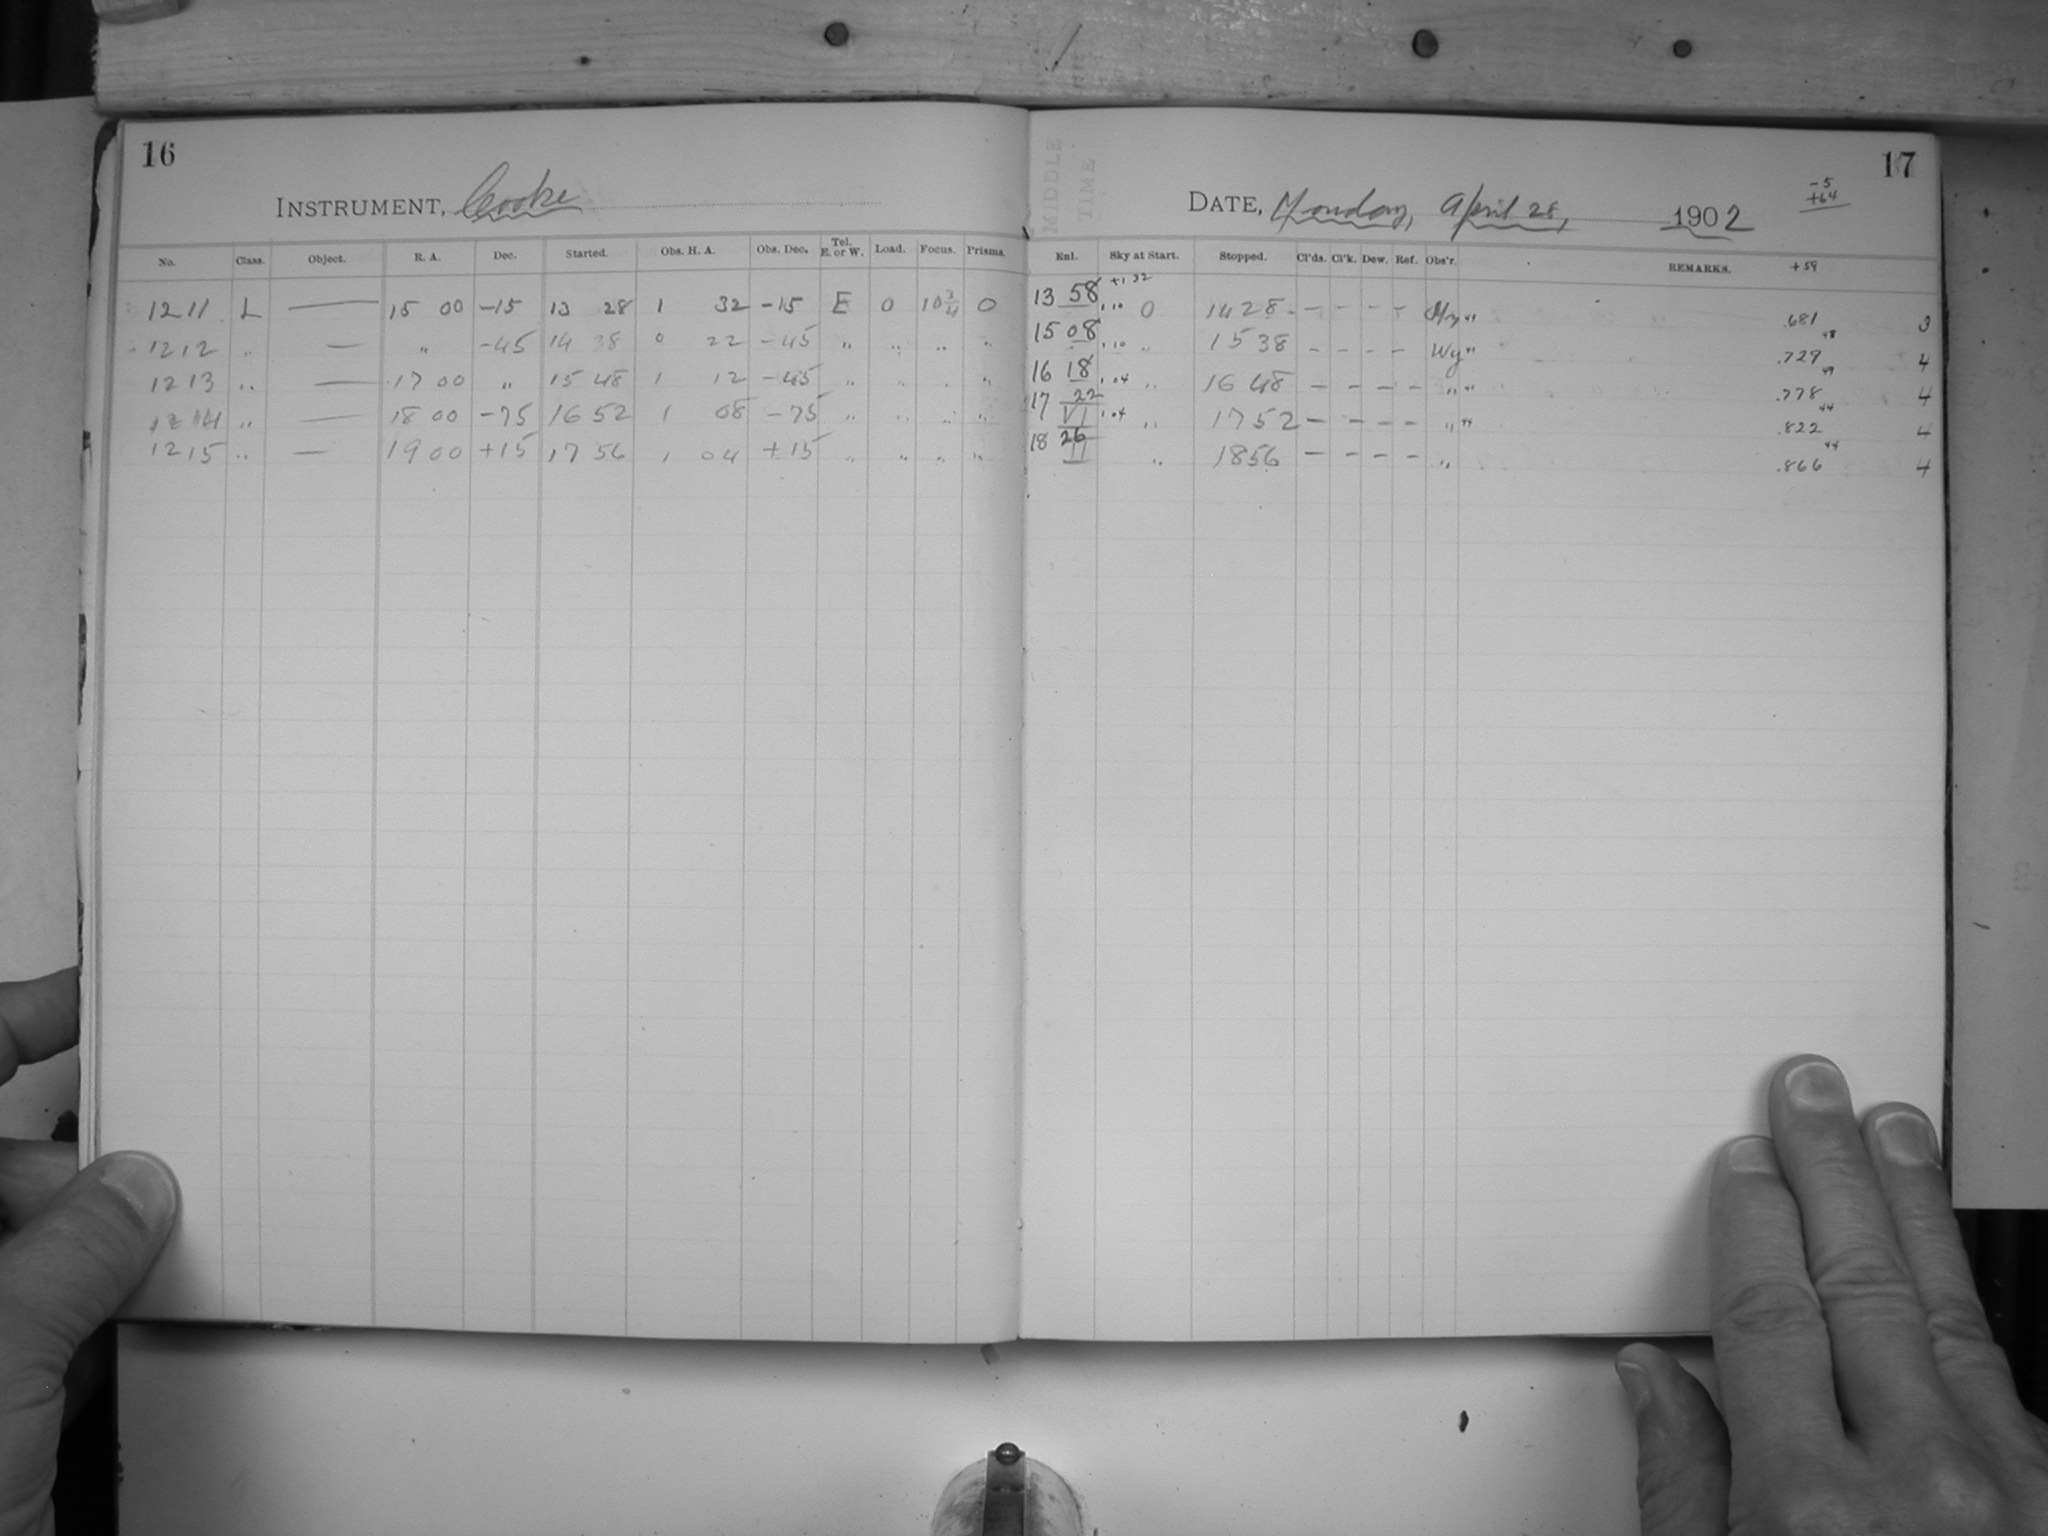 16
INSTRUMENT, Cooke
No. Class. Object. R. A. Dec. Started. Obs. H. A. Obs. Dec. Tel. E. or W. Load. Focus. Prisms.
1211 L — 15 00 -15 13 28 1 32 -15 E 0 10 3/4 0
1212 " — " -45 14 38 0 22 -45 " " " "
1213 " — 17 00 " 15 48 1 12 -45 " " " "
1214 " — 18 00 -75 16 52 1 08 -75 " " " "
1215 " — 19 00 +15 17 56 1 04 +15 " " " "
17
MIDDLE TIME
DATE, Monday, April 28, 1902
-5
+64
Enl. Sky at Start. Stopped. Cl'ds. Cl'k. Dew. Ref. Obs'r. REMARKS. +59
+1 32
13 58 1.10 0 14 28 - - - - " .681 3
15 08 1.10 " 15 38 - - - - Wy " .729 48 4
16 18 1.04 " 16 48 - - - - " " .778 49 4
17 22 1.04 " 17 52 - - - - " " .822 44 4
18 26 " 18 56 - - - - " .866 44 4